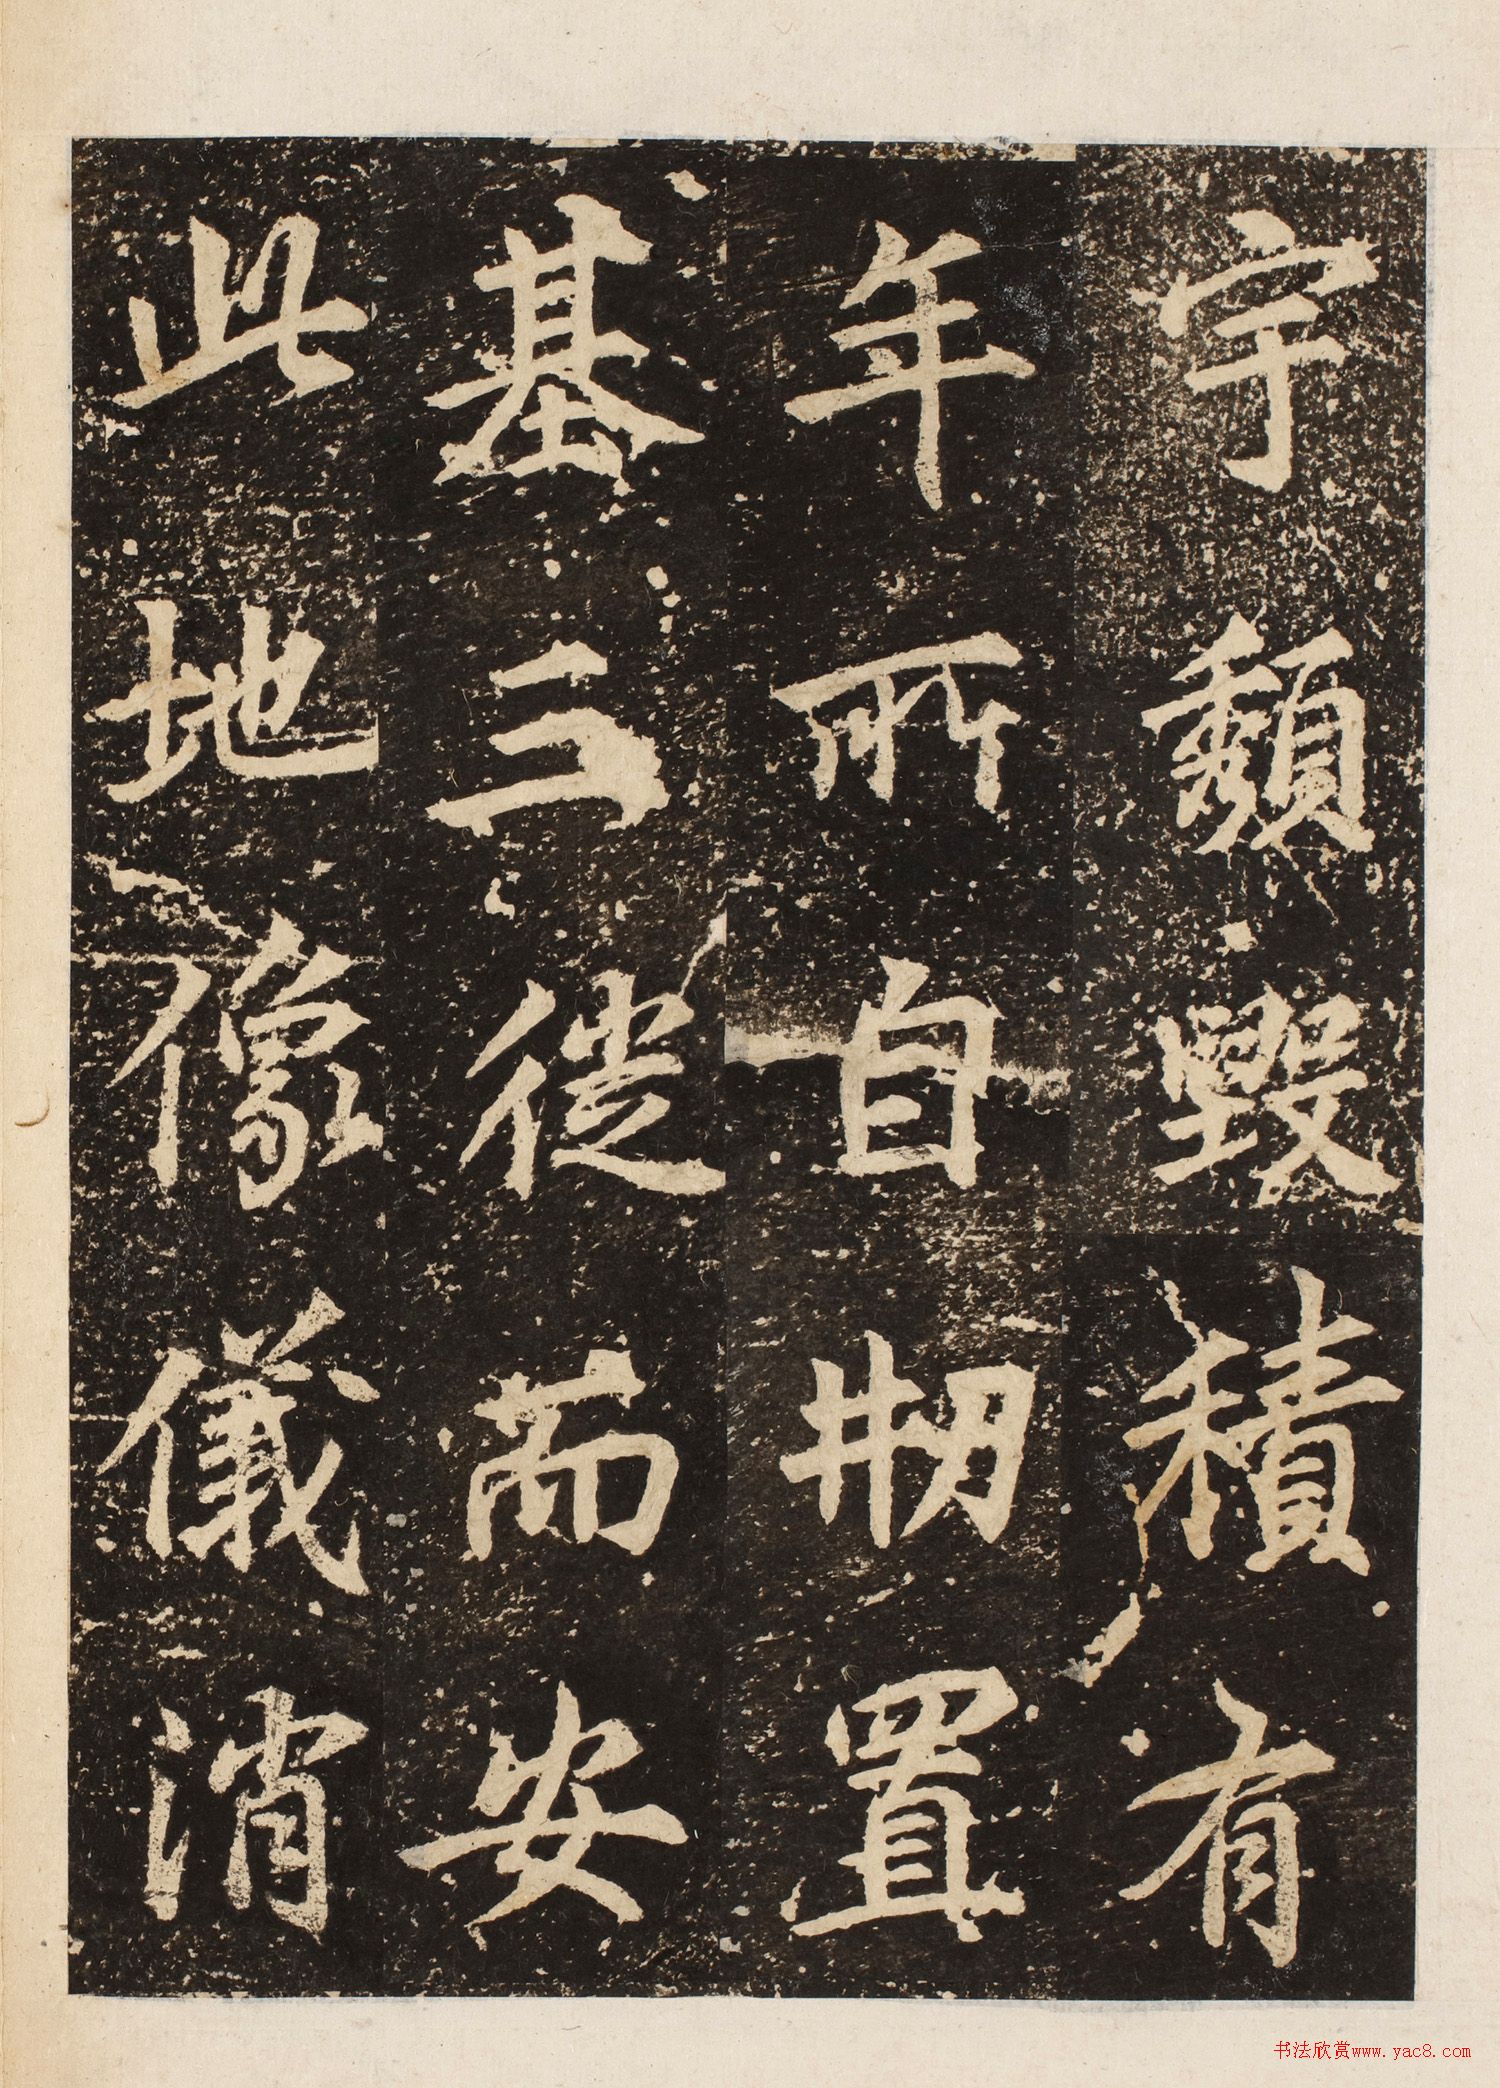 宇頹毀積有
年所自刱置
基三徙而安
此地像儀消
书法欣赏www.yac8.com